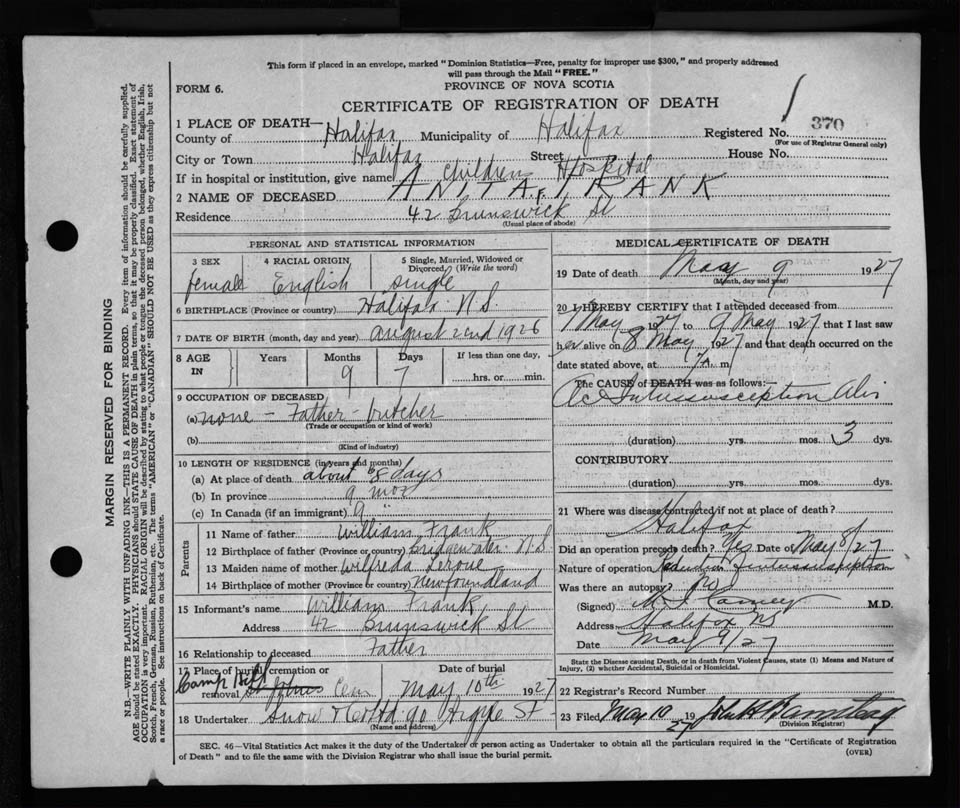 This form if placed in an envelope, marked "Dominion Statistics—Free, penalty for improper use $300," and properly addressed
will pass through the Mail "FREE."
FORM 6.
PROVINCE OF NOVA SCOTIA
CERTIFICATE OF REGISTRATION OF DEATH
1 PLACE OF DEATH—
County of Halifax Municipality of Halifax Registered No. 370
(For use of Registrar General only)
City or Town Halifax Street House No.
If in hospital or institution, give name Childrens Hospital
2 NAME OF DECEASED ANITA F. FRANK
Residence 42 Brunswick St
(Usual place of abode)
PERSONAL AND STATISTICAL INFORMATION
3 SEX 4 RACIAL ORIGIN 5 Single, Married, Widowed or Divorced. (Write the word)
female English single
6 BIRTHPLACE (Province or country) Halifax N.S.
7 DATE OF BIRTH (month, day and year) august 22nd 1926
8 AGE IN Years Months Days If less than one day,
9 7 hrs. or min.
9 OCCUPATION OF DECEASED
(a) none – Father – butcher
(Trade or occupation or kind of work)
(b)
(Kind of industry)
10 LENGTH OF RESIDENCE (in years and months)
(a) At place of death about 8 days
(b) In province 9 mos
(c) In Canada (if an immigrant) 9 "
Parents
11 Name of father William Frank
12 Birthplace of father (Province or country) Bridgewater N.S
13 Maiden name of mother Wilfreda
14 Birthplace of mother (Province or country) Newfoundland
15 Informant's name William Frank
Address 42 Brunswick St
16 Relationship to deceased Father
17 Place of burial, cremation or removal Date of burial
Camp Hill Cem May 10th 1927
18 Undertaker Snow & Co Ltd 90 Argyle St
(Name and address)
MEDICAL CERTIFICATE OF DEATH
19 Date of death May 9 1927
(Month, day and year)
20 I HEREBY CERTIFY that I attended deceased from
7 May 1927 to 9 May 1927 that I last saw
her alive on 8 May 1927 and that death occurred on the
date stated above, at A. m
The CAUSE of DEATH was as follows:
Ac Intussusception
(duration) yrs. mos. 3 dys.
CONTRIBUTORY
(duration) yrs. mos. dys.
21 Where was disease contracted if not at place of death?
Halifax
Did an operation precede death? Yes Date of May 8/27
Nature of operation Reduction Intussusception
Was there an autopsy? no
(Signed) M.D.
Address Halifax NS
Date May 9/27
State the Disease causing Death, or in death from Violent Causes, state (1) Means and Nature of
Injury, (2) whether Accidental, Suicidal or Homicidal.
22 Registrar's Record Number
23 Filed May 10 1927 John H
(Division Registrar)
SEC. 46—Vital Statistics Act makes it the duty of the Undertaker or person acting as Undertaker to obtain all the particulars required in the "Certificate of Registration
of Death" and to file the same with the Division Registrar who shall issue the burial permit.
(OVER)
MARGIN RESERVED FOR BINDING
N.B.—WRITE PLAINLY WITH UNFADING INK—THIS IS A PERMANENT RECORD. Every item of information should be carefully supplied.
AGE should be stated EXACTLY. PHYSICIANS should STATE CAUSE OF DEATH in plain terms, so that it may be properly classified. Exact statement of
OCCUPATION is very important. RACIAL ORIGIN will be described by stating to what people or tongue the deceased person belonged, whether English, Irish,
Scotch, French, German, Russian, Ruthenian, etc. The terms "AMERICAN" or "CANADIAN" SHOULD NOT BE USED as they express citizenship but not
a race or people. See instructions on back of Certificate.